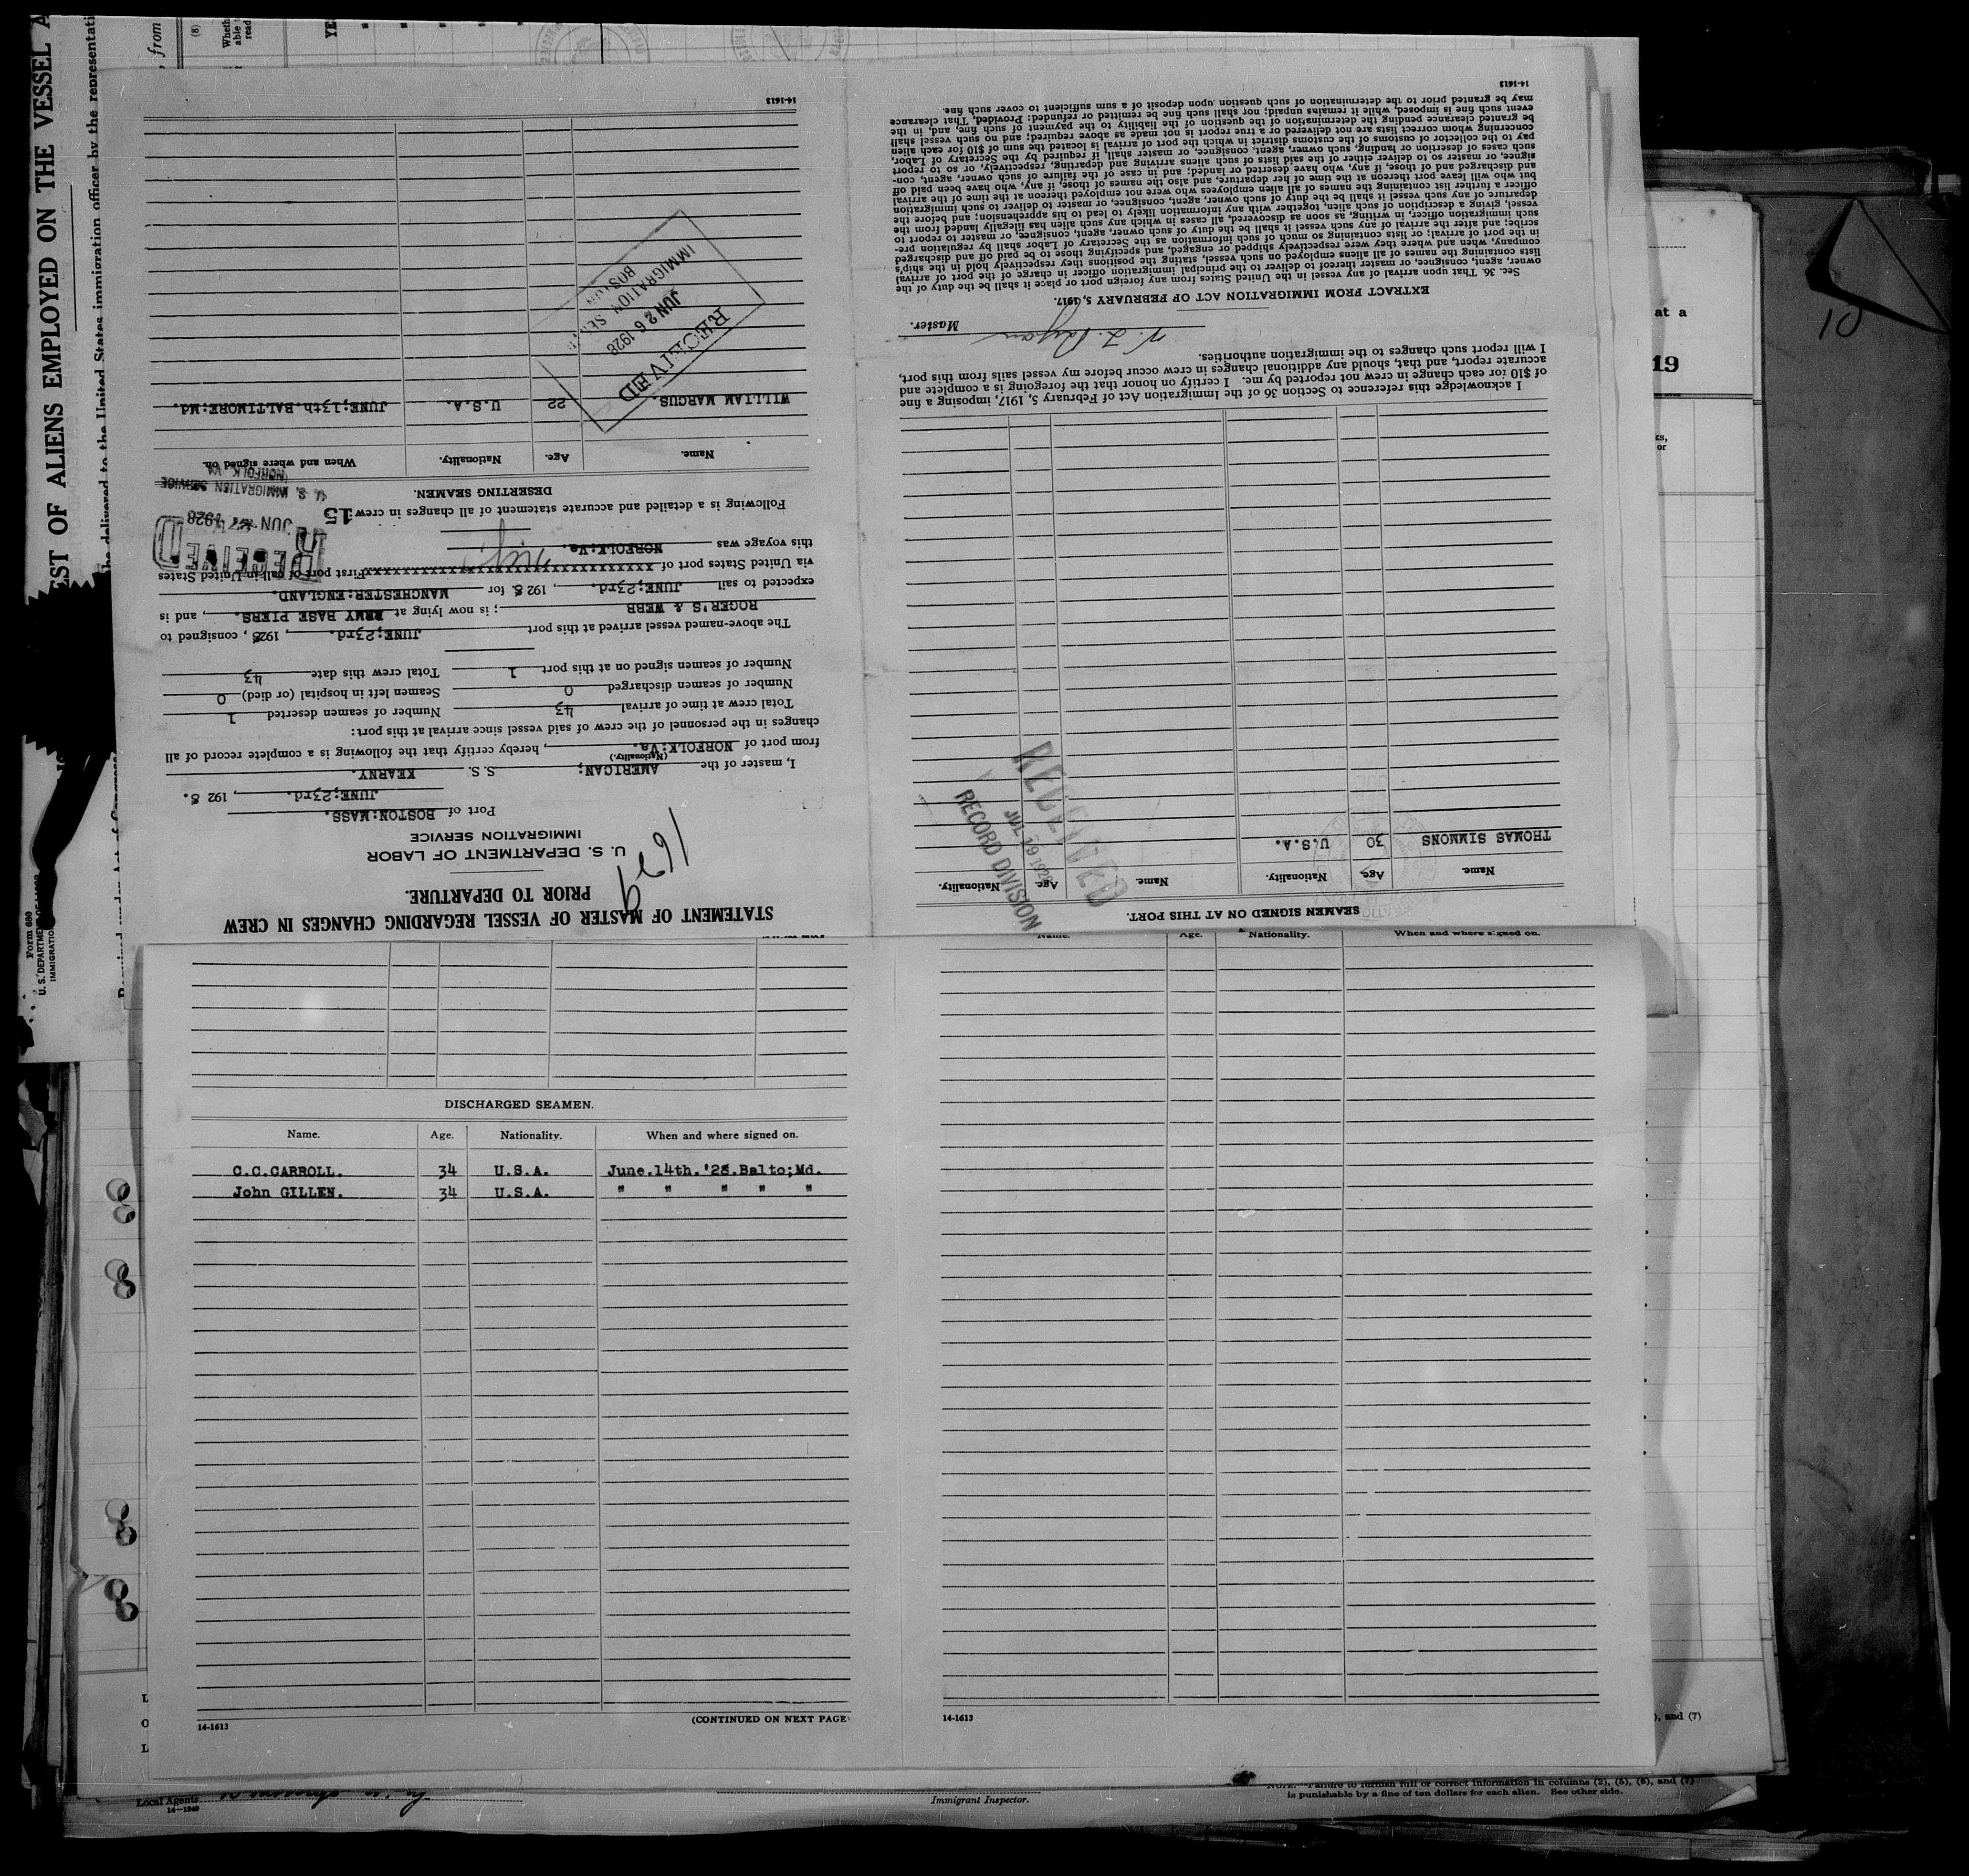 STATEMENT OF MASTER OF VESSEL REGARDING CHANGES IN CREW
PRIOR TO DEPARTURE.
U. S. DEPARTMENT OF LABOR
IMMIGRATION SERVICE
Port of BOSTON:MASS.
JUNE;23rd. , 192 8.
I, master of the AMERICAN; S. S. KEARNY.
(Nationality.)
from port of NORFOLK:Va. , hereby certify that the following is a complete record of all
changes in the personnel of the crew of said vessel since arrival at this port:
Total crew at time of arrival 43 Number of seamen deserted 1
Number of seamen discharged 0 Seamen left in hospital (or died) 0
Number of seamen signed on at this port 1 Total crew this date 43
The above-named vessel arrived at this port JUNE;23rd. , 1928 , consigned to
ROGER'S & WEBB ; is now lying at ARMY BASE PIERS. , and is
expected to sail JUNE;23rd. , 192 8 for MANCHESTER:ENGLAND.
via United States port of xxxxxxxxxxxxxxxxxxxxxxxxxxxxxxxxxxxxxx First port of call in United States
this voyage was NORFOLK:Va.
RECEIVED
JUN 27 1928
U. S. IMMIGRATION SERVICE
NORFOLK VA
Following is a detailed and accurate statement of all changes in crew: 15
DESERTING SEAMEN.
Name. Age. Nationality. When and where signed on.
WILLIAM MARCUS. 22 U.S.A. JUNE;13th.BALTIMORE:Md.
RECEIVED
JUN 26 1928
IMMIGRATION SER
BOSTON
14-1613
SEAMEN SIGNED ON AT THIS PORT.
Name. Age. Nationality. Name. Age. Nationality.
THOMAS SIMMONS 30 U.S.A.
RECEIVED
JUL 19 1928
RECORD DIVISION
I acknowledge this reference to Section 36 of the Immigration Act of February 5, 1917, imposing a fine
of $10 for each change in crew not reported by me. I certify on honor that the foregoing is a complete and
accurate report, and that, should any additional changes in crew occur before my vessel sails from this port,
I will report such changes to the immigration authorities.
Master.
EXTRACT FROM IMMIGRATION ACT OF FEBRUARY 5, 1917.
Sec. 36. That upon arrival of any vessel in the United States from any foreign port or place it shall be the duty of the
owner, agent, consignee, or master thereof to deliver to the principal immigration officer in charge of the port of arrival
lists containing the names of all aliens employed on such vessel, stating the positions they respectively hold in the ship's
company, when and where they were respectively shipped or engaged, and specifying those to be paid off and discharged
in the port of arrival; or lists containing so much of such information as the Secretary of Labor shall by regulation pre-
scribe; and after the arrival of any such vessel it shall be the duty of such owner, agent, consignee, or master to report to
such immigration officer, in writing, as soon as discovered, all cases in which any such alien has illegally landed from the
vessel, giving a description of such alien, together with any information likely to lead to his apprehension; and before the
departure of any such vessel it shall be the duty of such owner, agent, consignee, or master to deliver to such immigration
officer a further list containing the names of all alien employees who were not employed thereon at the time of the arrival
but who will leave port thereon at the time of her departure, and also the names of those, if any, who have been paid off
and discharged and of those, if any, who have deserted or landed; and in case of the failure of such owner, agent, con-
signee, or master so to deliver either of the said lists of such aliens arriving and departing, respectively, or so to report
such cases of desertion or landing, such owner, agent, consignee, or master shall, if required by the Secretary of Labor,
pay to the collector of customs of the customs district in which the port of arrival is located the sum of $10 for each alien
concerning whom correct lists are not delivered or a true report is not made as above required; and no such vessel shall
be granted clearance pending the determination of the question of the liability to the payment of such fine, and, in the
event such fine is imposed, while it remains unpaid; nor shall such fine be remitted or refunded: Provided, That clearance
may be granted prior to the determination of such question upon deposit of a sum sufficient to cover such fine.
14-1613
Name. Age. Nationality. When and where signed on.
DISCHARGED SEAMEN.
Name. Age. Nationality. When and where signed on.
C.C.CARROLL. 34 U.S.A. June.14th.'28.Balto;Md.
John GILLEN. 34 U.S.A. " " " " "
14-1613 (CONTINUED ON NEXT PAGE
14-1613
EST OF ALIENS EMPLOYED ON THE VESSEL A
be delivered to the United States immigration officer by the representati
Form 680
U. S. DEPARTMENT OF LABOR
from
(8)
Wheth
able
read
YE
at a
19
10
), and (7)
Local Agents
14-1940
Immigrant Inspector.
NOTE. Failure to furnish full or correct information in columns (2), (5), (6), and (7)
is punishable by a fine of ten dollars for each alien. See other side.